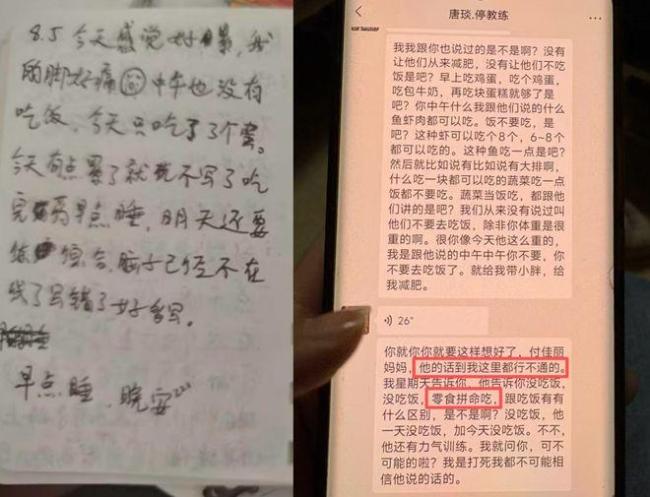 8.5 今天感觉好累,我
的脚好痛 中午也没有
吃饭,今天只吃了个蛋。
今天有点累了就先不写了吃
完药早点睡,明天还要
练 综合,脑子已经不在
线了写错了好多字。
早点睡.晚安zzz
唐琰.停教练
我我跟你也说过的是不是啊?没有
让他们从来减肥,没有让他们不吃
饭是吧?早上吃鸡蛋,吃个鸡蛋,
吃包牛奶,再吃块蛋糕就够了是
吧?你中午什么我跟他们说的什么
鱼虾肉都可以吃。饭不要吃,是
吧?这种虾可以吃个8个,6~8个
都可以吃的。这种鱼吃一点是吧?
然后就比如说有比如说有大排啊,
什么吃一块都可以吃的蔬菜吃一点
饭都不要吃。蔬菜当饭吃,都跟他
们讲的是吧?我们从来没有说过叫
他们不要去吃饭,除非你体重是很
重的啊。很你像今天他这么重的,
我是跟他说的中午中午你不要,你
不要去吃饭了。就给我带小胖,给
我减肥。
26"
你就你你就要这样想好了,付佳丽
妈妈,他的话到我这里都行不通的。
我星期天告诉你,他告诉你没吃饭,
没吃饭,零食拼命吃,跟吃饭有有
什么区别,是不是啊?没吃饭,他
一天没吃饭,加今天没吃饭。不不,
他还有力气训练。我就问你,可不
可能的啦?我是打死我都不可能相
信他说的话的。